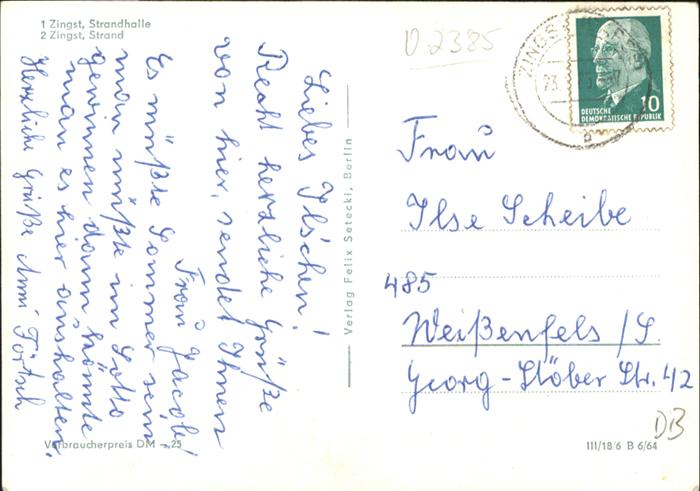 1 Zingst, Strandhalle
2 Zingst, Strand
Liebes Ilschen!
Recht herzliche Grüße
von hier, sendet Ihnen
Frau Jacob!
Es müßte Sommer sein
man müßte im Lotto
gewinnen dann könnte
man es hier aushalten.
Herzliche Grüße Anni Förtsch
Verbraucherpreis DM -,25
Verlag Felix Setecki, Berlin
V 2385
ZINGST
23.
b
10
DEUTSCHE
DEMOKRATISCHE REPUBLIK
Frau
Ilse Scheibe
485
Weißenfels /S.
Georg-Stöber Str. 42
DB
III/18/6 B 6/64